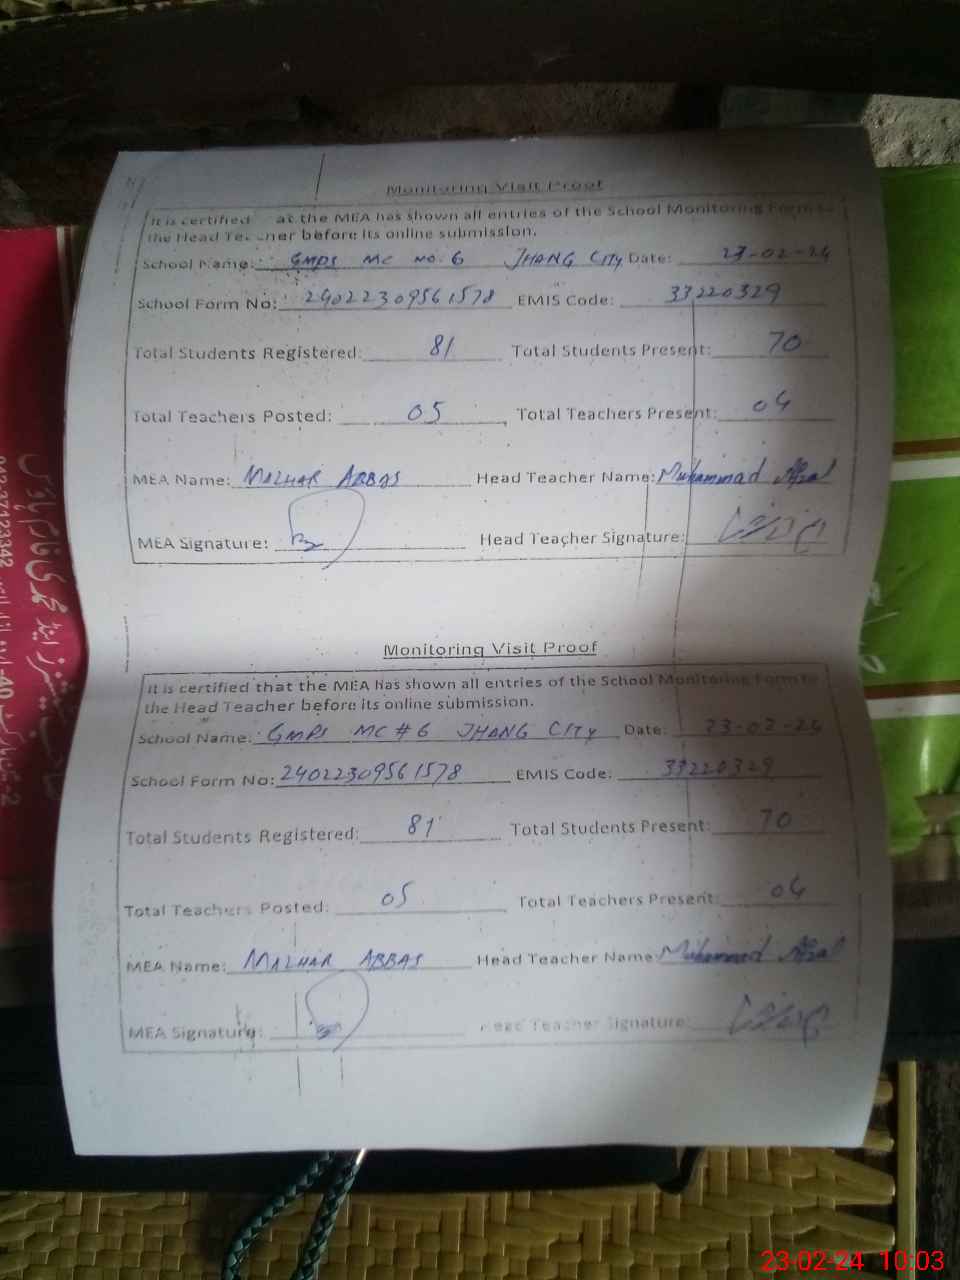 Monitoring Visit Proof
It is certified at the MEA has shown all entries of the School Monitoring Form to
the Head Teacher before its online submission.
School Name: GMPS MC NO. 6 JHANG CITY Date: 23-02-24
School Form No: 24022309561578 EMIS Code: 33220329
Total Students Registered: 81 Total Students Present: 70
Total Teachers Posted: 05 Total Teachers Present: 04
MEA Name: MAZHAR ABBAS Head Teacher Name: Muhammad Afzal
MEA Signature: Head Teacher Signature:
Monitoring Visit Proof
It is certified that the MEA has shown all entries of the School Monitoring Form to
the Head Teacher before its online submission.
School Name: GMPS MC # 6 JHANG CITY Date: 23-02-24
School Form No: 24022309561578 EMIS Code: 33220329
Total Students Registered: 81 Total Students Present: 70
Total Teachers Posted: 05 Total Teachers Present: 04
MEA Name: MAZHAR ABBAS Head Teacher Name: Muhammad Afzal
MEA Signature: Head Teacher Signature:
042-37123342
23-02-24 10:03